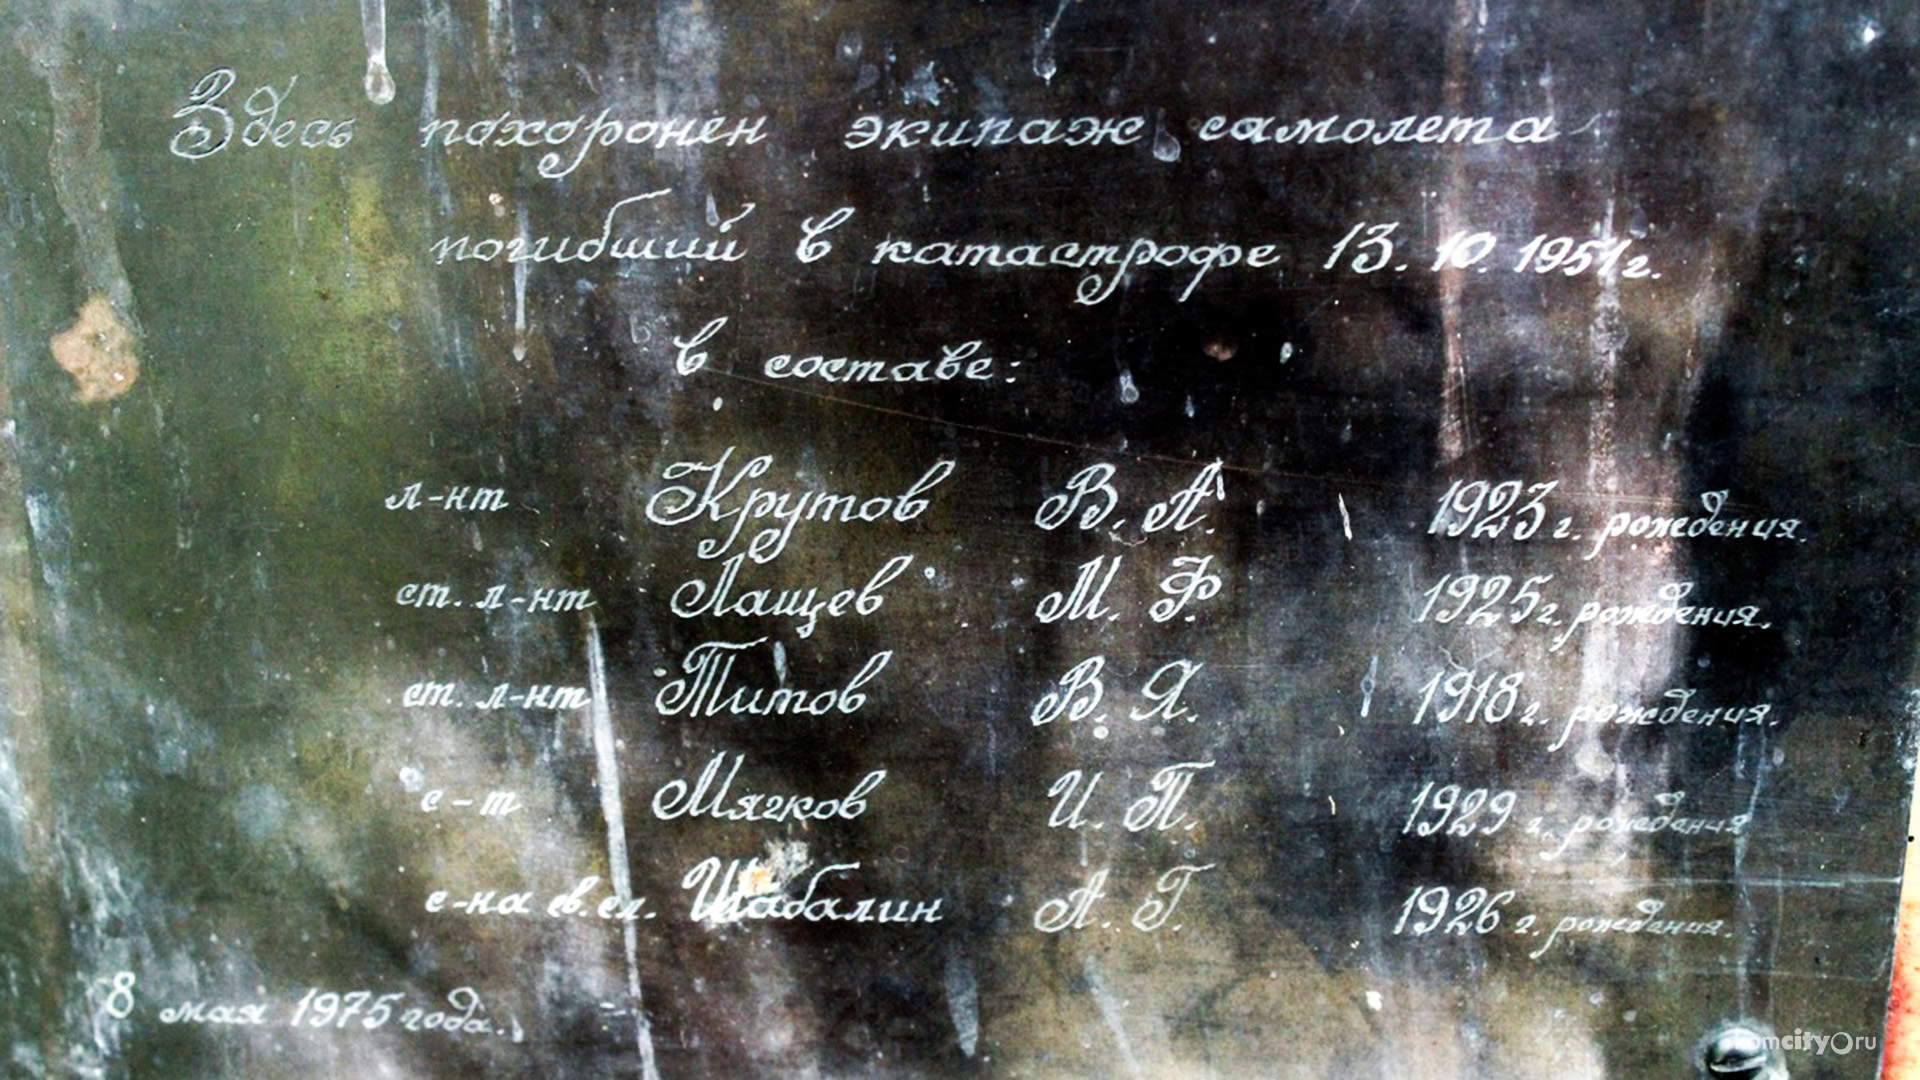 Здесь похоронен экипаж самолета
погибший в катастрофе 13.10.1951г.
в составе:
л-нт Крутов В. А. 1923 г. рождения.
ст. л-нт Лащев М. Ф. 1925 г. рождения.
ст. л-нт Титов В. Я. 1918 г. рождения.
с-т Мягков И. П. 1929 г. рождения
с-на св.сл. Шабалин А. Г. 1926 г. рождения.
8 мая 1975 года.
komcity.ru